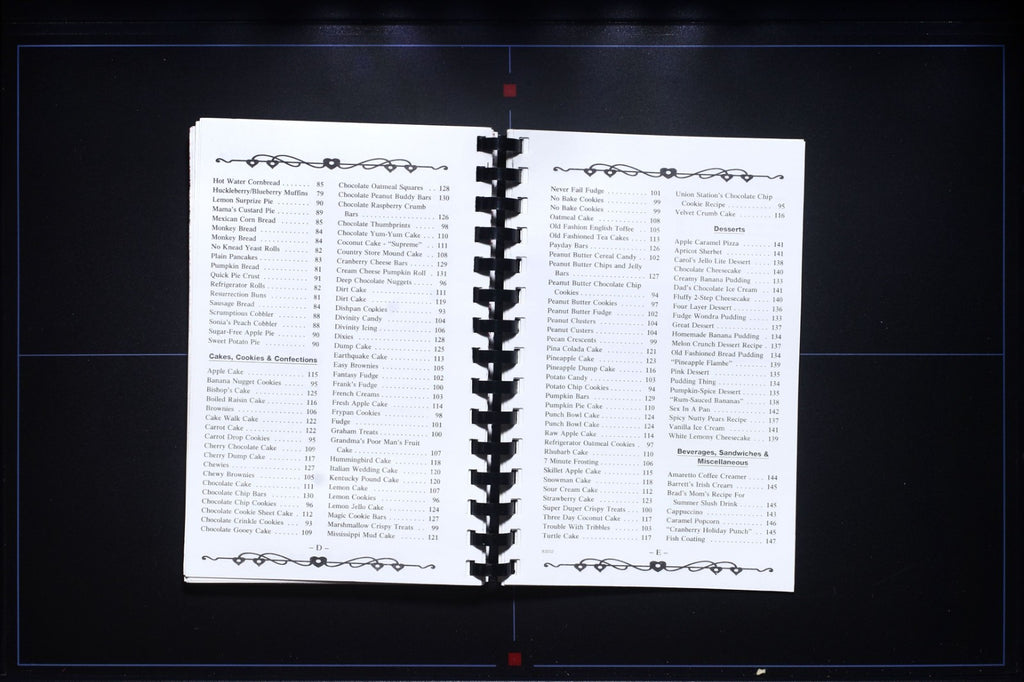 Hot Water Cornbread . . . . . . . 85
Huckleberry/Blueberry Muffins 79
Lemon Surprize Pie . . . . . . . . 90
Mama's Custard Pie . . . . . . . . 89
Mexican Corn Bread . . . . . . . . 85
Monkey Bread . . . . . . . . 84
Monkey Bread . . . . . . . . 84
No Knead Yeast Rolls . . . . . . . . 82
Plain Pancakes . . . . . . . . 83
Pumpkin Bread . . . . . . . . 81
Quick Pie Crust . . . . . . . . 91
Refrigerator Rolls . . . . . . . . 82
Resurrection Buns . . . . . . . . 81
Sausage Bread . . . . . . . . 84
Scrumptious Cobbler . . . . . . . . 88
Sonia's Peach Cobbler . . . . . . . . 88
Sugar-Free Apple Pie . . . . . . . . 90
Sweet Potato Pie . . . . . . . . 90
Cakes, Cookies & Confections
Apple Cake . . . . . . . . 115
Banana Nugget Cookies . . . . . . 95
Bishop's Cake . . . . . . . . 125
Boiled Raisin Cake . . . . . . . . 116
Brownies . . . . . . . . 106
Cake Walk Cake . . . . . . . . 122
Carrot Cake . . . . . . . . 122
Carrot Drop Cookies . . . . . . . . 95
Cherry Chocolate Cake . . . . 109
Cherry Dump Cake . . . . . . 117
Chewies . . . . . . . . 127
Chewy Brownies . . . . . . . . 105
Chocolate Cake . . . . . . . . 111
Chocolate Chip Bars . . . . . . 130
Chocolate Chip Cookies . . . . 96
Chocolate Cookie Sheet Cake . . 112
Chocolate Crinkle Cookies . . . 93
Chocolate Gooey Cake . . . . . 109
Chocolate Oatmeal Squares . . 128
Chocolate Peanut Buddy Bars 130
Chocolate Raspberry Crumb
Bars . . . . . . . . 126
Chocolate Thumbprints . . . . . 98
Chocolate Yum-Yum Cake . . . . 110
Coconut Cake - "Supreme" . . . . 111
Country Store Mound Cake . . 108
Cranberry Cheese Bars . . . . . . 129
Cream Cheese Pumpkin Roll . . 131
Deep Chocolate Nuggets . . . . . 96
Dirt Cake . . . . . . . . 111
Dirt Cake . . . . . . . . 119
Dishpan Cookies . . . . . . . . 93
Divinity Candy . . . . . . . . 104
Divinity Icing . . . . . . . . 106
Dixies . . . . . . . . 128
Dump Cake . . . . . . . . 125
Earthquake Cake . . . . . . . . 113
Easy Brownies . . . . . . . . 105
Fantasy Fudge . . . . . . . . 102
Frank's Fudge . . . . . . . . 100
French Creams . . . . . . . . 103
Fresh Apple Cake . . . . . . . . 114
Frypan Cookies . . . . . . . . 98
Fudge . . . . . . . . 101
Graham Treats . . . . . . . . 100
Grandma's Poor Man's Fruit
Cake . . . . . . . . 107
Hummingbird Cake . . . . . . . . 118
Italian Wedding Cake . . . . . . 120
Kentucky Pound Cake . . . . . . 120
Lemon Cake . . . . . . . . 107
Lemon Cookies . . . . . . . . 96
Lemon Jello Cake . . . . . . . . 124
Magic Cookie Bars . . . . . . . . 127
Marshmallow Crispy Treats . . 99
Mississippi Mud Cake . . . . . . 121
– D –
Never Fail Fudge . . . . . . . . 101
No Bake Cookies . . . . . . . . 99
No Bake Cookies . . . . . . . . 99
Oatmeal Cake . . . . . . . . 108
Old Fashion English Toffee . . 105
Old Fashioned Tea Cakes . . . . 113
Payday Bars . . . . . . . . 126
Peanut Butter Cereal Candy . . 102
Peanut Butter Chips and Jelly
Bars . . . . . . . . 127
Peanut Butter Chocolate Chip
Cookies . . . . . . . . 94
Peanut Butter Cookies . . . . . . 97
Peanut Butter Fudge . . . . . . . . 102
Peanut Clusters . . . . . . . . 104
Peanut Custers . . . . . . . . 104
Pecan Crescents . . . . . . . . 99
Pina Colada Cake . . . . . . . . 121
Pineapple Cake . . . . . . . . 123
Pineapple Dump Cake . . . . . . 116
Potato Candy . . . . . . . . 103
Potato Chip Cookies . . . . . . . . 94
Pumpkin Bars . . . . . . . . 129
Pumpkin Pie Cake . . . . . . . . 110
Punch Bowl Cake . . . . . . . . 124
Punch Bowl Cake . . . . . . . . 124
Raw Apple Cake . . . . . . . . 114
Refrigerator Oatmeal Cookies . 97
Rhubarb Cake . . . . . . . . 110
7 Minute Frosting . . . . . . . . 106
Skillet Apple Cake . . . . . . . . 115
Snowman Cake . . . . . . . . 118
Sour Cream Cake . . . . . . . . 112
Strawberry Cake . . . . . . . . 123
Super Duper Crispy Treats . . . 100
Three Day Coconut Cake . . . . 117
Trouble With Tribbles . . . . . . 103
Turtle Cake . . . . . . . . 117
Union Station's Chocolate Chip
Cookie Recipe . . . . . . . . 95
Velvet Crumb Cake . . . . . . . . 116
Desserts
Apple Caramel Pizza . . . . . . . . 141
Apricot Sherbet . . . . . . . . 141
Carol's Jello Lite Dessert . . . . . 138
Chocolate Cheesecake . . . . . . 140
Creamy Banana Pudding . . . . 133
Dad's Chocolate Ice Cream . . . 141
Fluffy 2-Step Cheesecake . . . . 140
Four Layer Dessert . . . . . . . . 136
Fudge Wondra Pudding . . . . . 133
Great Dessert . . . . . . . . 137
Homemade Banana Pudding . 134
Melon Crunch Dessert Recipe . 137
Old Fashioned Bread Pudding 134
"Pineapple Flambe" . . . . . . . . 139
Pink Dessert . . . . . . . . 135
Pudding Thing . . . . . . . . 134
Pumpkin-Spice Dessert . . . . . 135
"Rum-Sauced Bananas" . . . . . 138
Sex In A Pan . . . . . . . . 142
Spicy Nutty Pears Recipe . . . . 137
Vanilla Ice Cream . . . . . . . . 141
White Lemony Cheesecake . . . 139
Beverages, Sandwiches &
Miscellaneous
Amaretto Coffee Creamer . . . . 144
Barrett's Irish Cream . . . . . . . . 145
Brad's Mom's Recipe For
Summer Slush Drink . . . . . . 145
Cappuccino . . . . . . . . 143
Caramel Popcorn . . . . . . . . 146
"Cranberry Holiday Punch" . . 145
Fish Coating . . . . . . . . 147
– E –